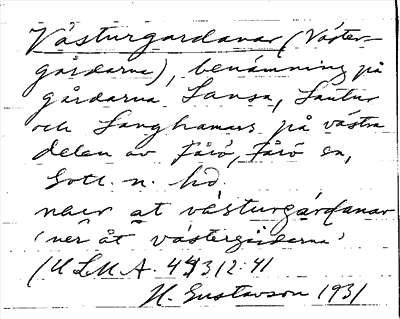 Västurgardanar (Väster-
gårdarna), benämning på
gårdarna Lansa, Lautur
och Langhamars på västra
delen av Fårö, Fårö sn,
Gotl. n. hd.
naur at västurgárdanar
'ner åt västergårdarna'
(ULMA 4431 2:41
H. Gustavson 1931